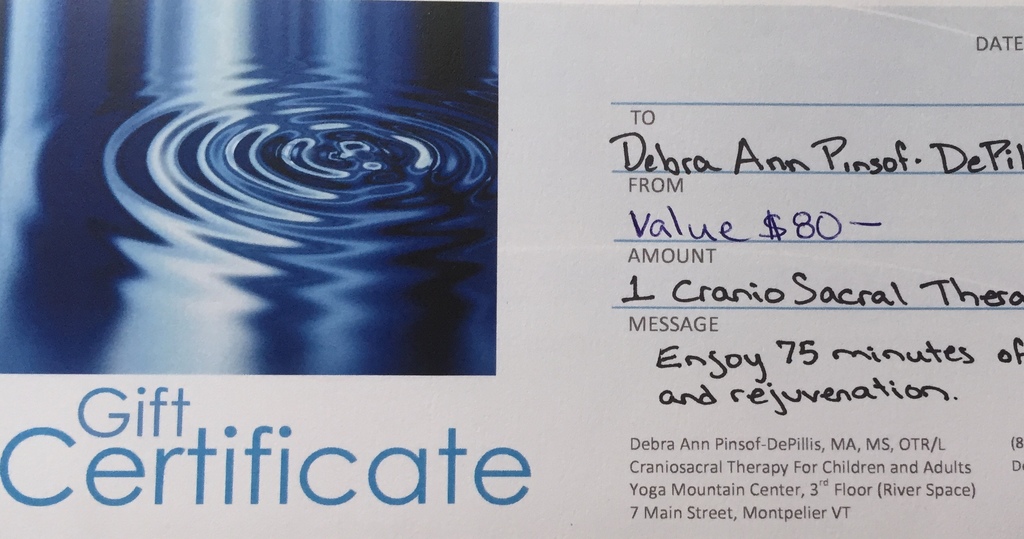 DATE
TO
Debra Ann Pinsof-DePil
FROM
Value $80—
AMOUNT
1 Cranio Sacral Thera
MESSAGE
Enjoy 75 minutes of
and rejuvenation.
Gift
Certificate
Debra Ann Pinsof-DePillis, MA, MS, OTR/L (8
Craniosacral Therapy For Children and Adults De
Yoga Mountain Center, 3rd Floor (River Space)
7 Main Street, Montpelier VT